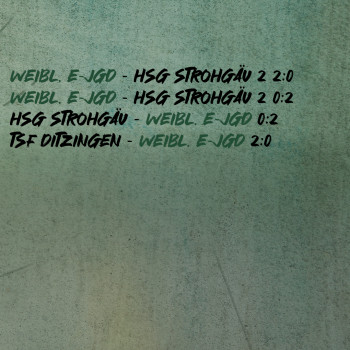 WEIBL. E-JGD - HSG STROHGÄU 2 2:0
WEIBL. E-JGD - HSG STROHGÄU 2 0:2
HSG STROHGÄU - WEIBL. E-JGD 0:2
TSF DITZINGEN - WEIBL. E-JGD 2:0